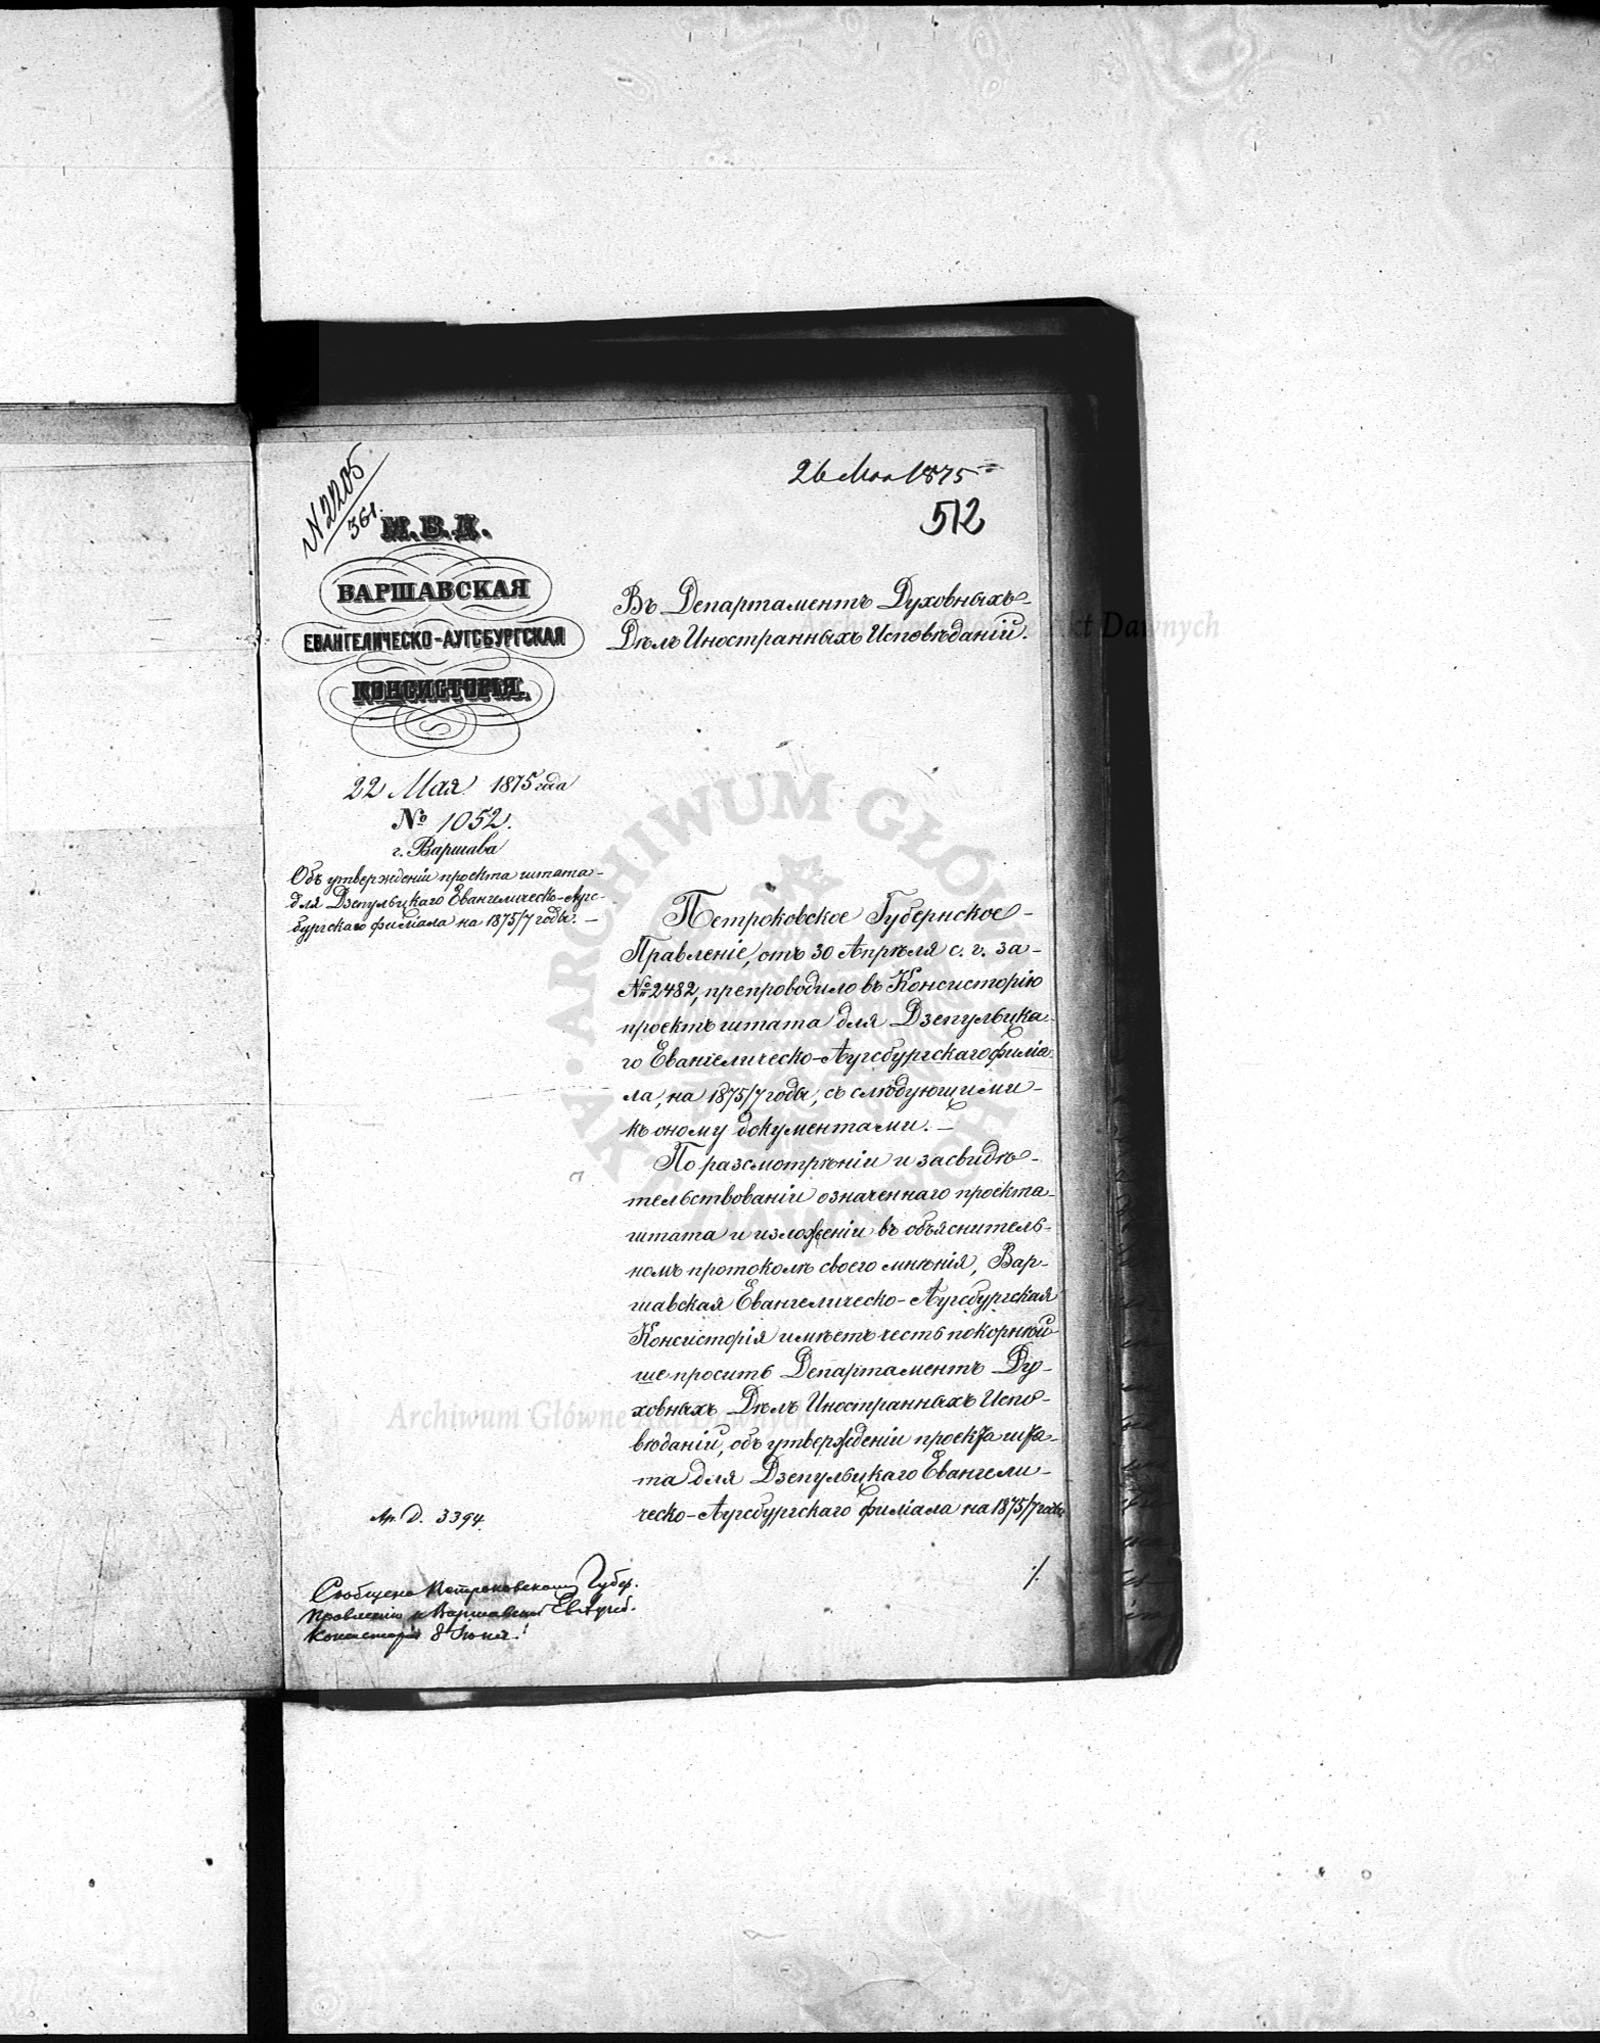 N 2205
361.
26 Мая 1875
512
М.В.Д.
ВАРШАВСКАЯ
ЕВАНГЕЛИЧЕСКО-АУГСБУРГСКАЯ
КОНСИСТОРІЯ.
22 Мая 1875 года
№ 1052.
г. Варшава
Объ утвержденіи проекта штата
для Дзепульцкаго Евангелическо-Аугс-
бургскаго филіала на 1875/7 годы. —
Въ Департаментъ Духовныхъ
Дѣлъ Иностранныхъ Исповѣданій.
Петроковское Губернское
Правленіе, отъ 30 Апрѣля с. г. за
№ 2482, препроводило въ Консисторію
проектъ штата для Дзепульцка-
го Евангелическо-Аугсбургскаго филіа-
ла, на 1875/7 годы, съ слѣдующими
къ оному документами. —
По разсмотрѣніи и засвидѣ-
тельствованіи означеннаго проекта
штата и изложеніи въ объяснитель-
номъ протоколѣ своего мнѣнія, Вар-
шавская Евангелическо-Аугсбургская
Консисторія имѣетъ честь покорнѣй-
ше просить Департаментъ Ду-
ховныхъ Дѣлъ Иностранныхъ Испо-
вѣданій, объ утвержденіи проекта шта-
та для Дзепульцкаго Евангели-
ческо-Аугсбургскаго филіала на 1875/7 годы
./.
Ар. Д. 3394.
Сообщено Петроковскому Губер.
Правленію и Варшавской Ев. Аугсб.
Консисторіи 8 Іюня.
Archiwum Główne Akt Dawnych
Archiwum Główne Akt Dawnych
ARCHIWUM GŁÓWNE AKT DAWNYCH